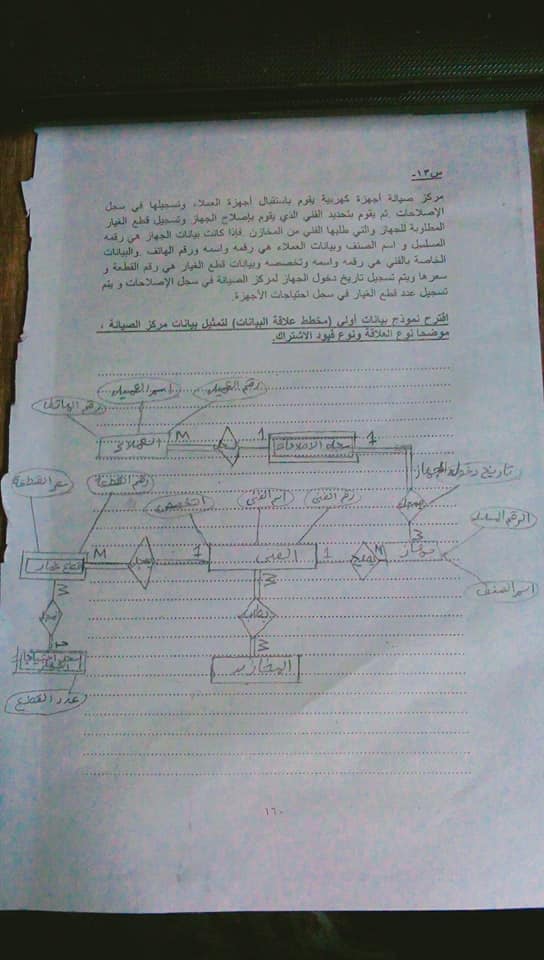 س١٣-
مركز صيانة أجهزة كهربية يقوم باستقبال أجهزة العملاء وتسجيلها في سجل
الإصلاحات. ثم يقوم بتحديد الفني الذي يقوم بإصلاح الجهاز وتسجيل قطع الغيار
المطلوبة للجهاز والتي طلبها الفني من المخازن. فإذا كانت بيانات الجهاز هي رقمه
المسلسل و اسم الصنف وبيانات العملاء هي رقمه واسمه ورقم الهاتف. والبيانات
الخاصة بالفني هي رقمه واسمه وتخصصه وبيانات قطع الغيار هي رقم القطعة و
سعرها ويتم تسجيل تاريخ دخول الجهاز لمركز الصيانة في سجل الإصلاحات و يتم
تسجيل عدد قطع الغيار في سجل احتياجات الأجهزة.
اقترح نموذج بيانات أولي (مخطط علاقة البيانات) لتمثيل بيانات مركز الصيانة ،
موضحا نوع العلاقة ونوع قيود الاشتراك.
رقم العميل
اسم العميل
رقم الهاتف
العملاء M 1 سجل الاصلاحات 1
تاريخ دخول الجهاز
سعر القطعة
رقم القطعة
التخصص
اسم الفنى
رقم الفنى
الرقم المسلسل
قطع غيار M 1 الفنى 1 M M
اسم الصنف
M M
M
المخازن
عدد القطع
١٦٠